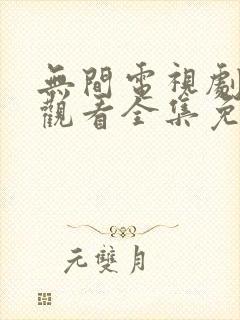 無間電視劇
觀看全集免
元雙月